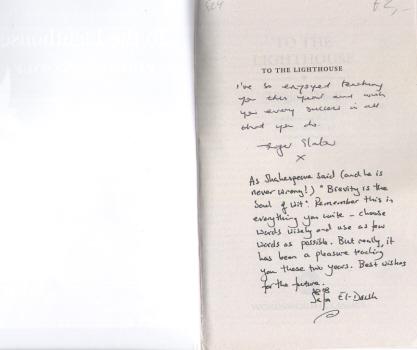 £2,-
TO THE LIGHTHOUSE
I've so enjoyed teaching
you this year and wish
you every success in all
that you do.
X
As Shakespeare said (and he is
never wrong!) "Brevity is the
Soul of Wit". Remember this in
everything you write - choose
words wisely and use as few
words as possible. But really, it
has been a pleasure teaching
you these two years. Best wishes
for the future.